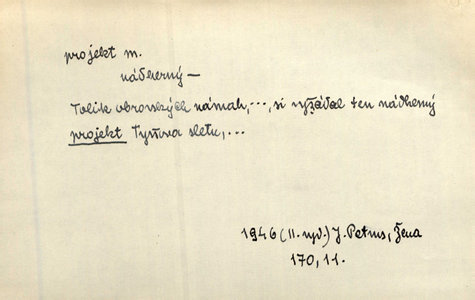 projekt m.
nádherný —
Tolik obrovských námah, ..., si vyžádal ten nádherný
projekt Tyršova sletu, ...
1946 (II. vyd.) J. Petrus, Žena
170, 11.